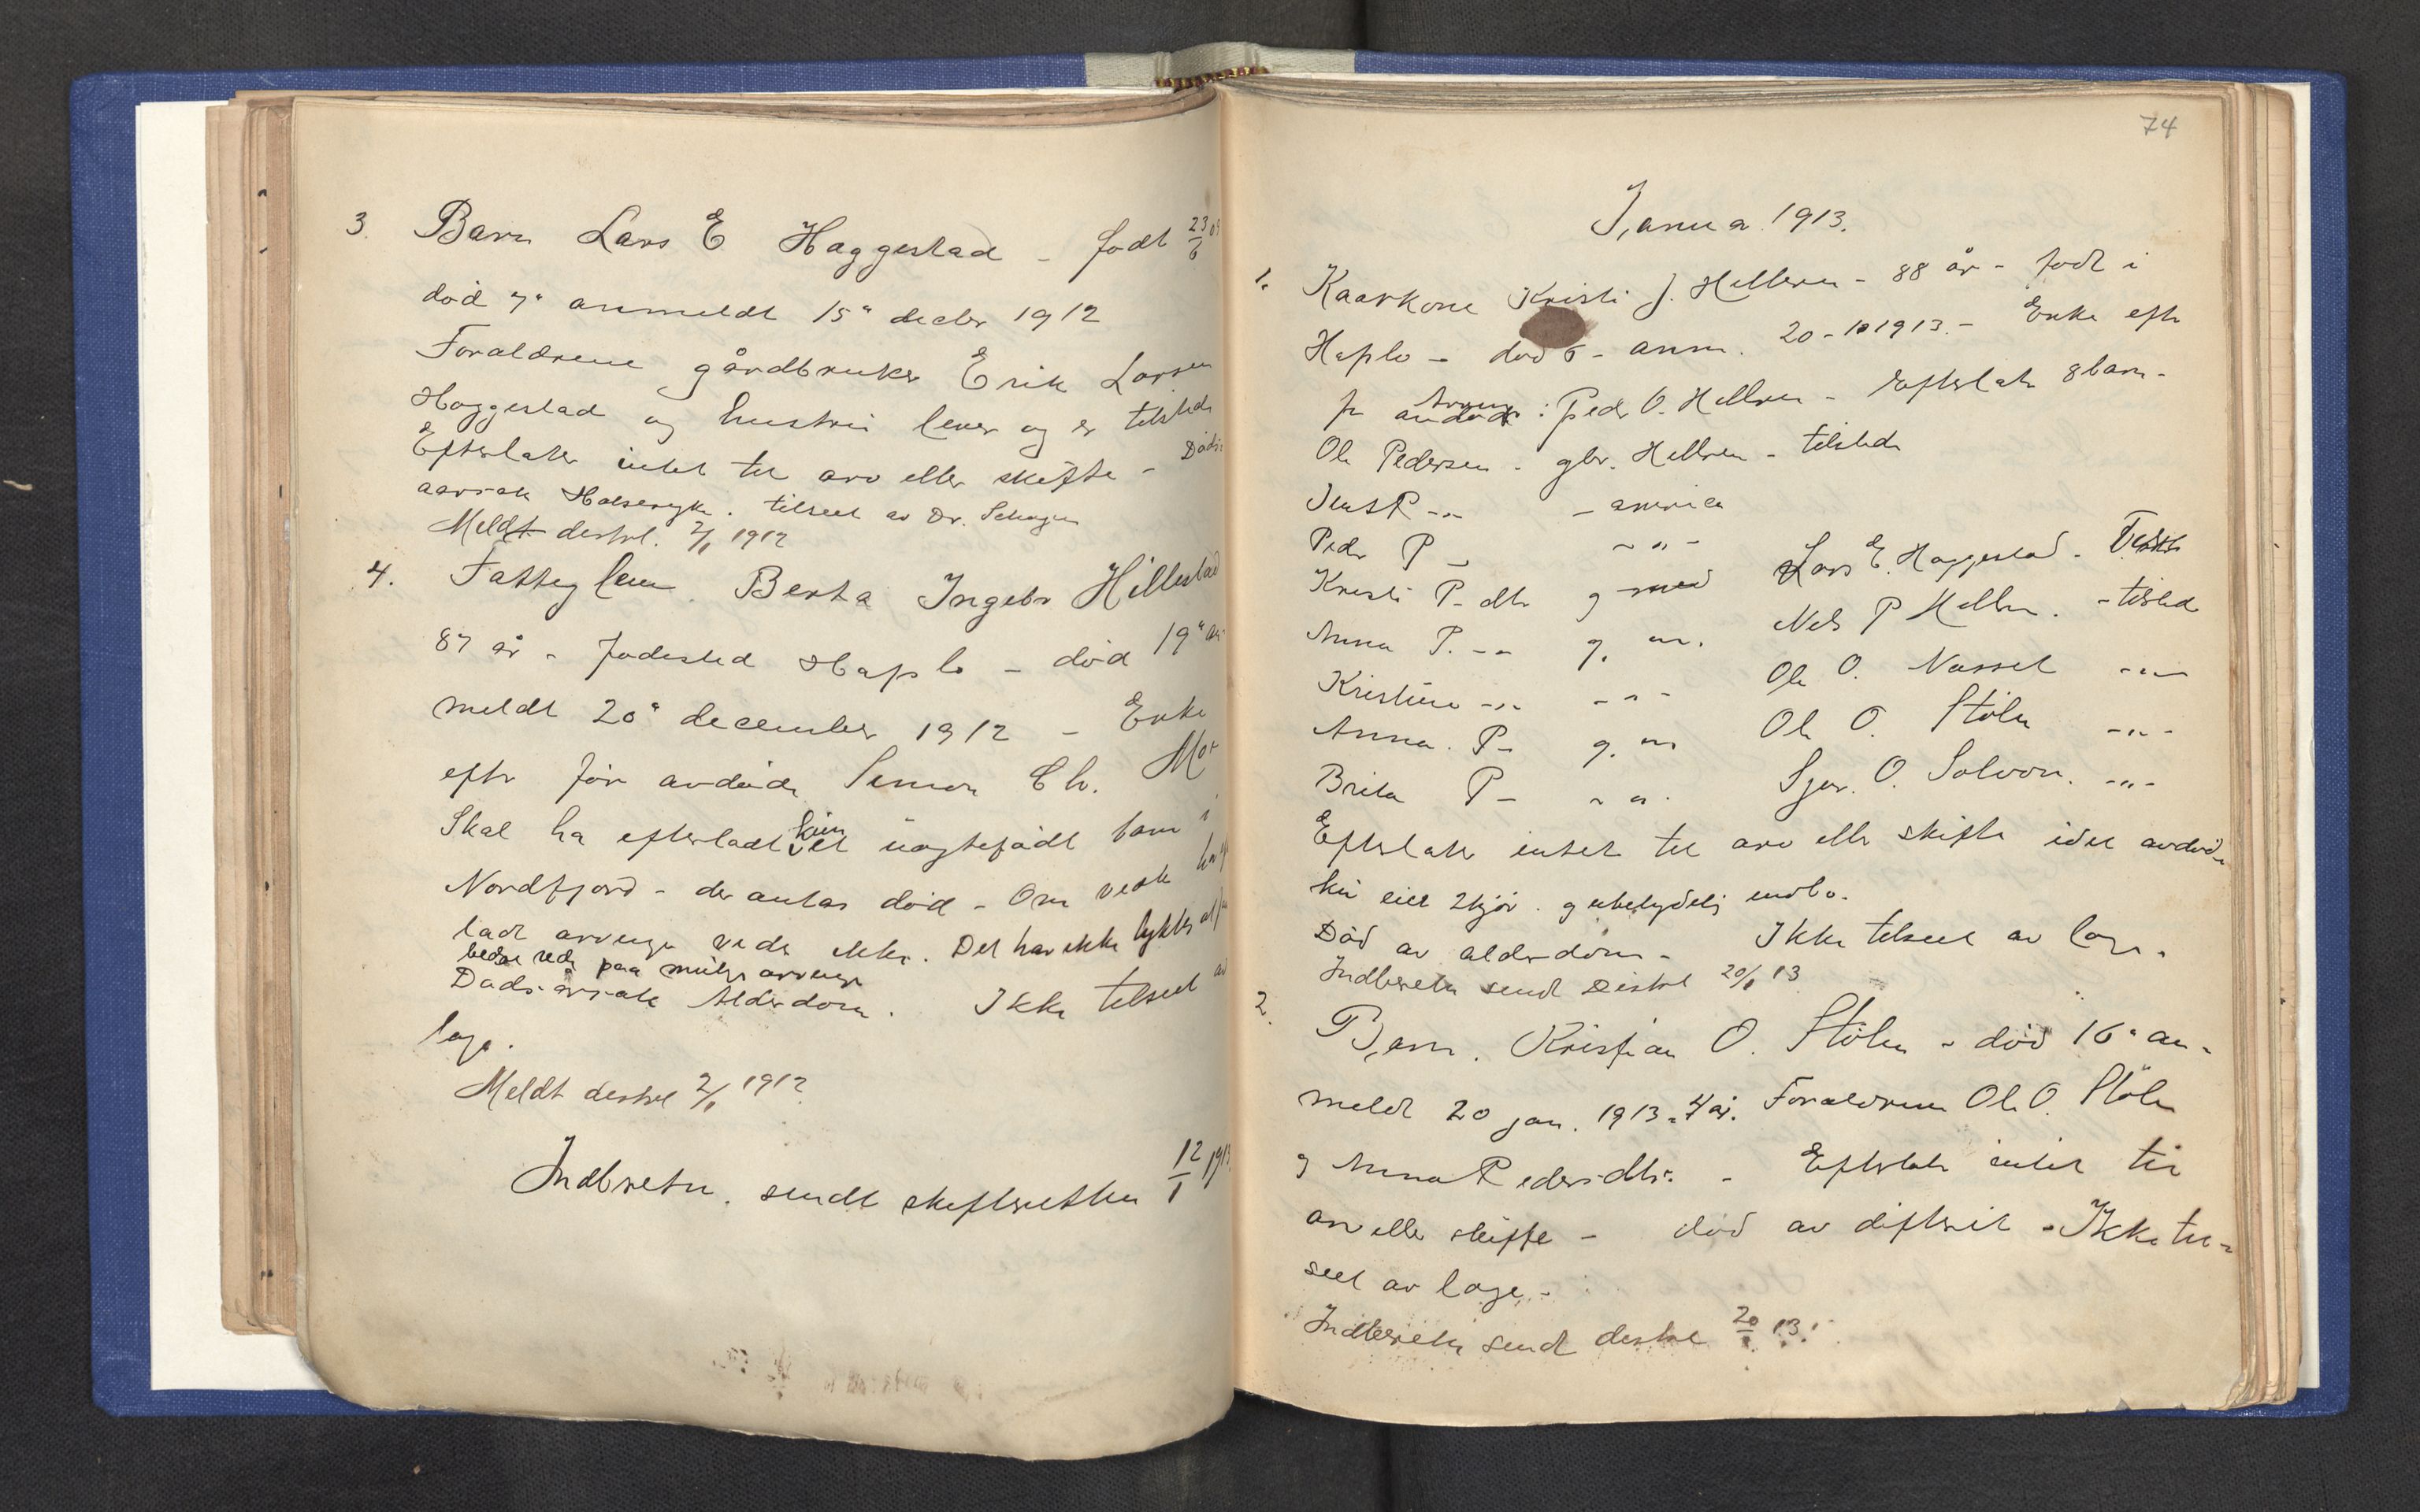 3. Barn Lars E Haggestad - født 23/6 09
död 7" anmeldt 15" decbr 1912
Forældrene gårdbruker Erik Larsen
Haggestad og hustru lever og er tilstede
Efterlater intet til arv eller skifte - Döds
aarsak Halsesyke. tilseet av Dr.
Meldt destrl. 2/1 1912
4. Fatteglem. Berta Ingebr Hillestad
87 år - Fødested Hafslo - död 19" an
meldt 20" december 1912 - Enke
eftr før avdöde Simon Ch. Mo
Skal ha efterladt kun et uægtefödt barn i
Nordfjord - der antas död - Om vedk har
ladt arvinger vides ikke. Det har ikke lykkes at faa
bedre rede paa mulige arvinger
Dödsårsak Alderdom. Ikke tilseet av
læge.
Meldt destrl 2/1 1912
Indbretn. sendt skifteretten 12/1 1913
74
Janua 1913.
1. Kaarkone Kristi J. Helleren - 88 år - født i
Hafslo - död 6 - anm. 20-1 1913. - Enke eftr
fr avdöde : Peder O. Hellren - Efterlatr 8 barn -
Ole Pedersen - gbr. Hellren - tilstede
Jens P -"- - america
Peder P - - " -
Kristi P- dtr g med Lars E. Haggestad - Tilstede
Anna P. -"- g. m. Nils P Hellren. - tilsted
Kristine -"- -"- Ole O. Næsset -"-
Anna. P- g. m Ole O. Stölen -"-
Brita P- -"- Sjur. O. Solvorn. -"-
Efterlater intet til arv eller skifte idet avdöde
kun eiet 2 kjør. og ubetydelig indbo.
Död av alderdom - Ikke tilseet av læge.
Indberetn sendt Destrl 20/1 13
2. Barn. Kristian O. Stölen - död 16" an-
meldt 20 jan. 1913. 4 år. Forældrene Ole O. Stölen
og Anna Pedersdtr. - Efterlatr intet til
arv eller skifte - död av difterit - Ikke til-
seet av læge -
Indberetn sendt destrl 20/1 13.